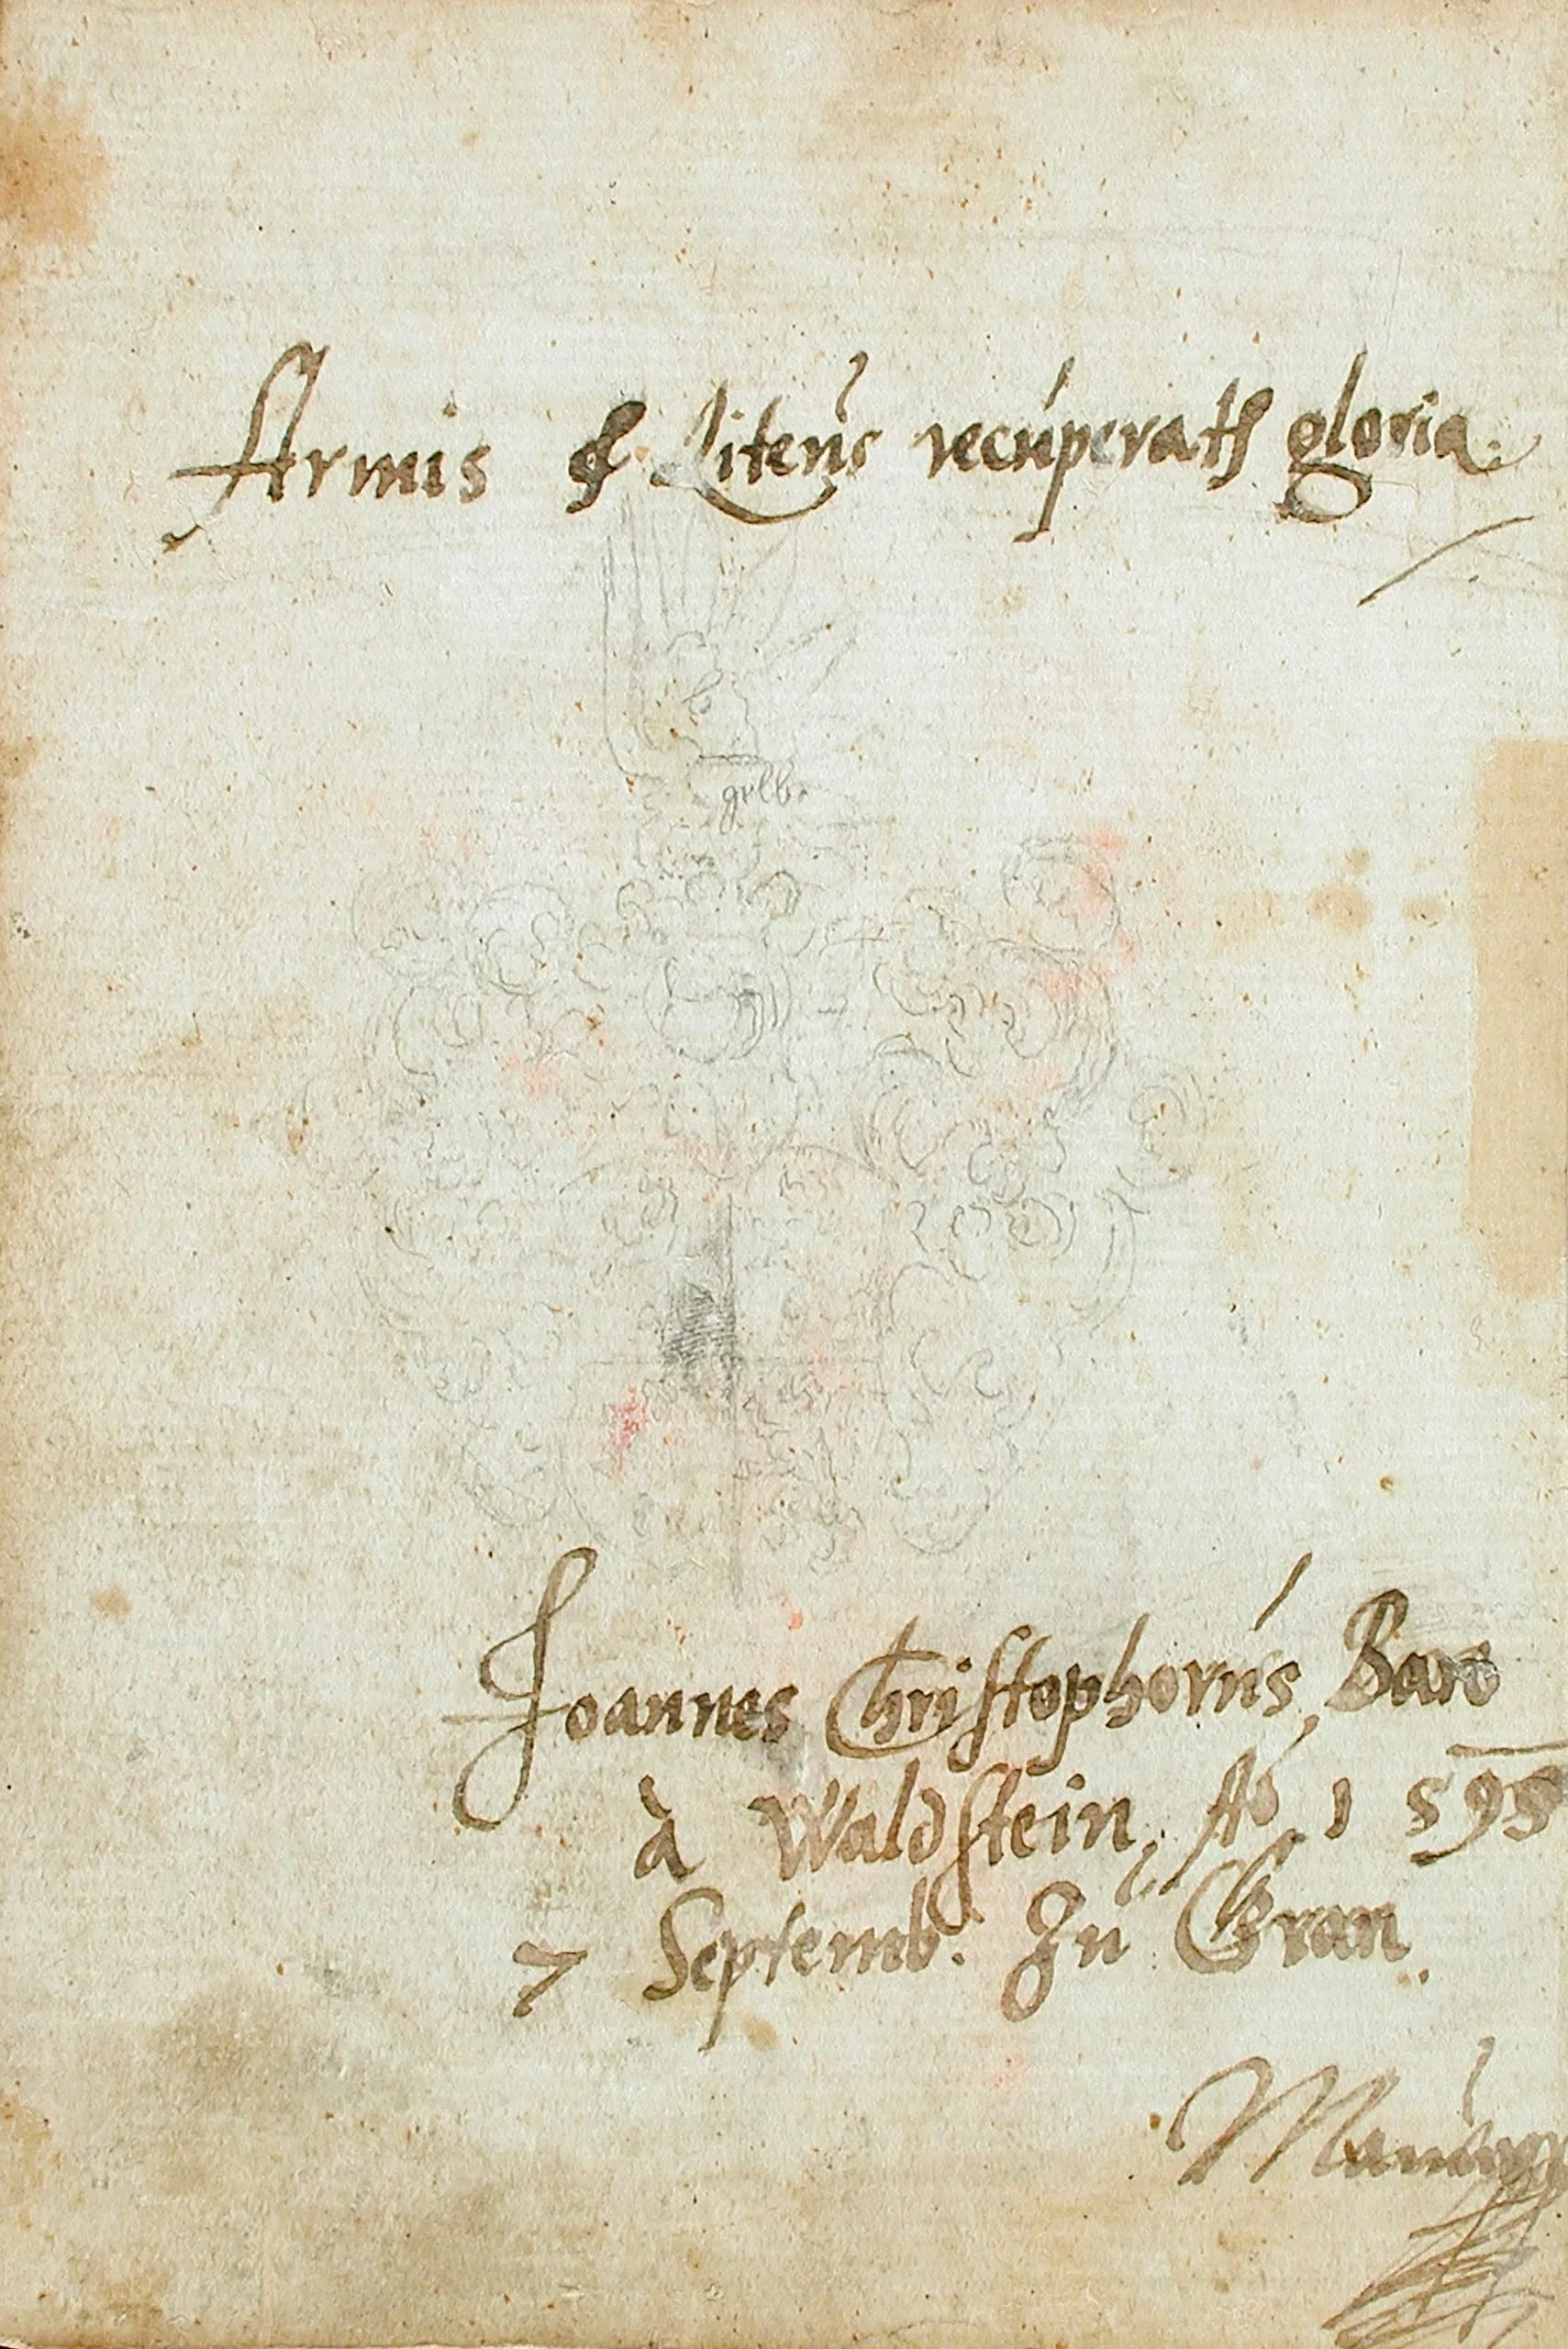 Armis & Literis recuperatur gloria.
gelb.
Joannes Christophorus Baro
à Waldstein, Ao 1595
7 Septemb. Zu Gran.